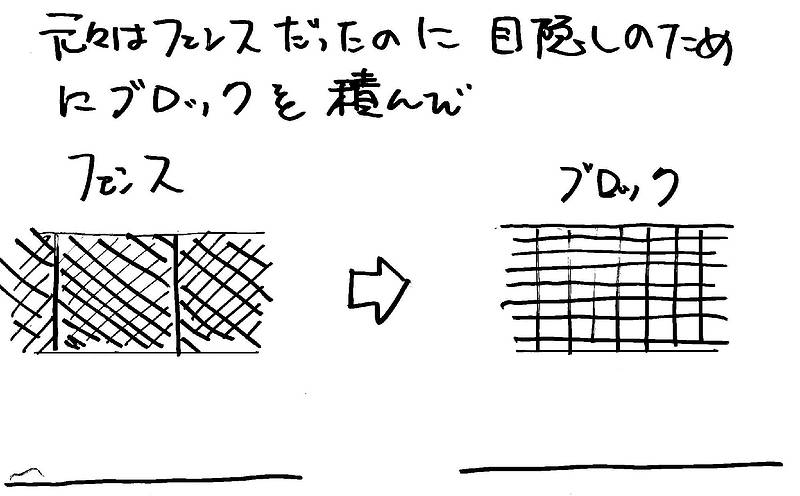 元々はフェンスだったのに 目隠しのため
にブロックを 積んで
フェンス
ブロック